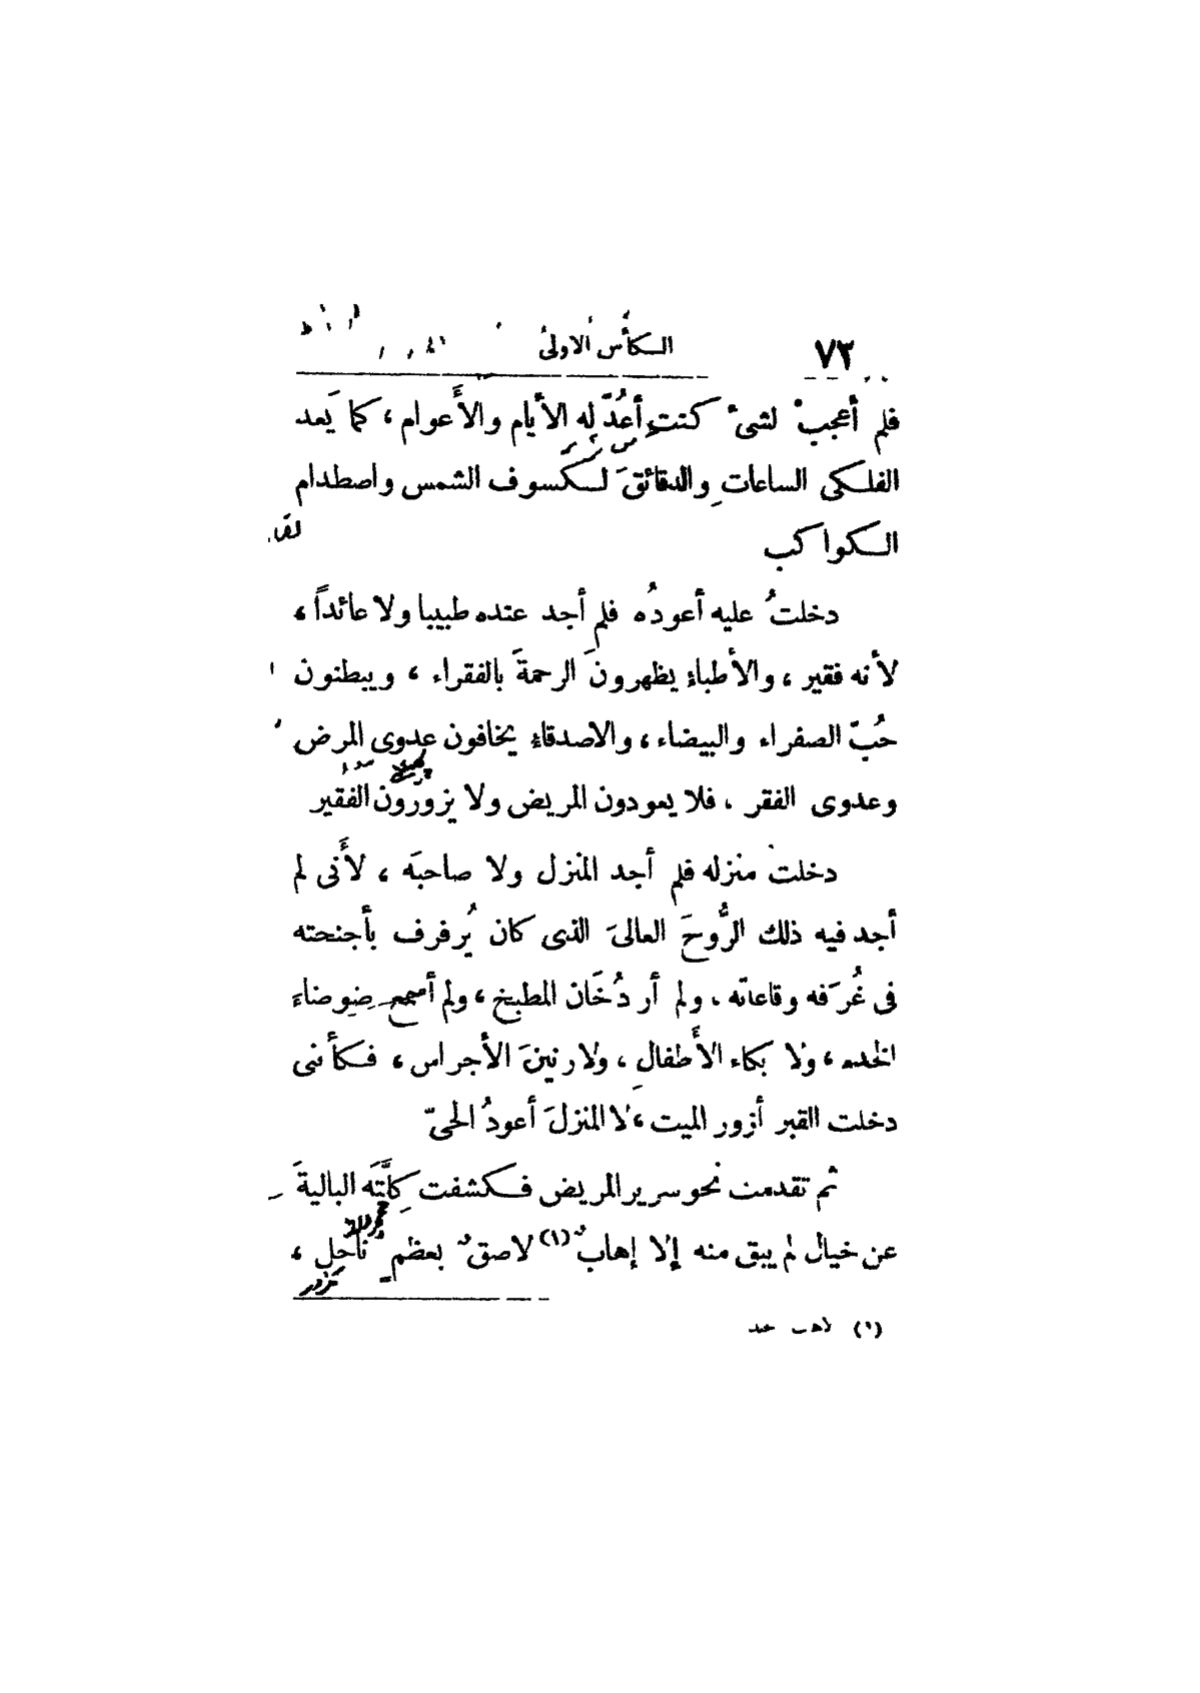 ٧٢ الكأس الاولى
فلم أعجب لشئ كنت أعُدّ له الأيام والأَعوام ، كما يَعد
الفلكى الساعاتِ والدقائقَ لكسوف الشمس واصطدام
الكواكب
دخلتُ عليه أعودُه فلم أجد عنده طبيبا ولا عائداً ،
لأنه فقير ، والأطباء يظهرونَ الرحمةَ بالفقراء ، ويبطنون
حُبّ الصفراء والبيضاء ، والاصدقاء يخافون عدوى المرض
وعدوى الفقر ، فلا يعودون المريض ولا يزورون الفقير
دخلت منزله فلم أجد المنزل ولا صاحبَه ، لأَنى لم
أجد فيه ذلك الرُّوحَ العالىَ الذى كان يُرفرف بأجنحته
فى غُرَفه وقاعاته ، ولم أر دُخَان المطبخ ، ولم أسمع ضوضاءَ
الخدم ، ولا بكاء الأَطفالِ ، ولا رنينَ الأجراس ، فكأننى
دخلت القبر أزور الميت ، لا المنزلَ أعودُ الحىّ
ثم تقدمت نحو سرير المريض فكشفت كِلَّتَه الباليةَ
عن خيال لم يبق منه إلا إهابٌ (١) لاصقٌ بعظم ناحل ،
(١)